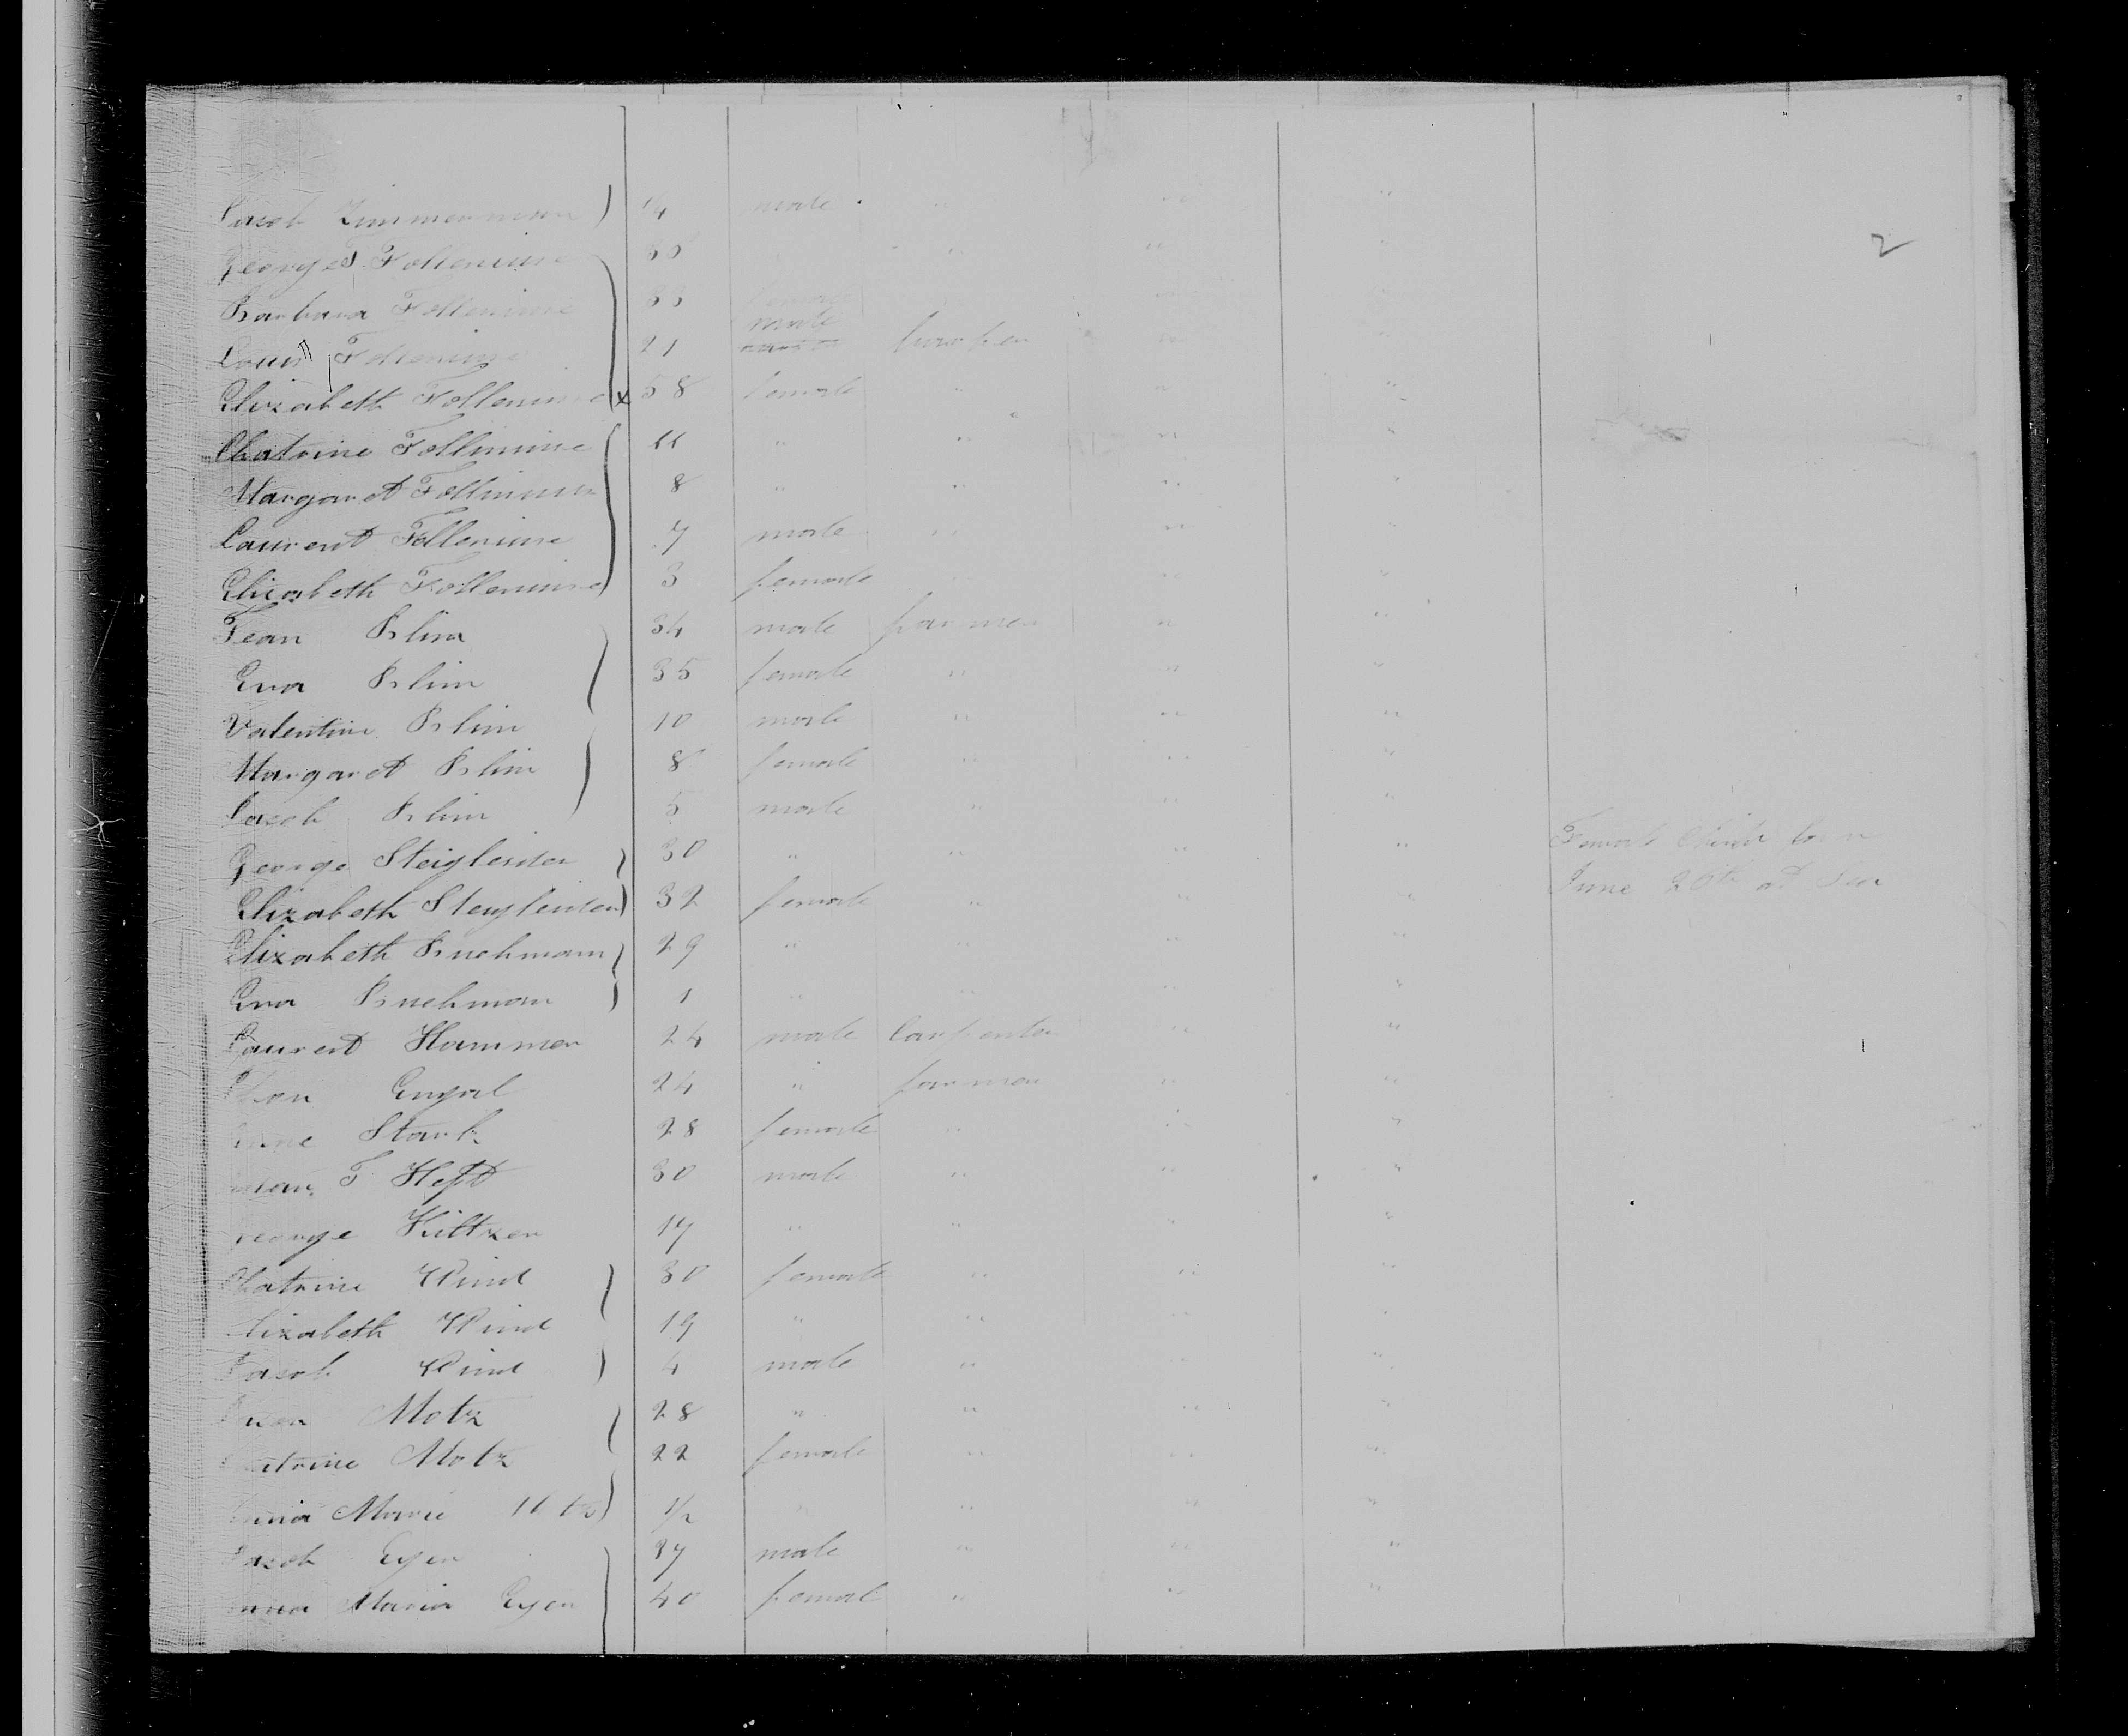 2
Jacob Zimmermann 1/4 male " " "
George Follenius 35 " " "
Barbara Follenius 33 female " " "
Louis Follenius 21 male " "
Elizabeth Follenius x 58 female " " "
Chatrine Follinius 11 " " " "
Margaret Follinius 8 " " " "
Laurent Follenius 7 male " " "
Elizabeth Follenius 3 female " " "
Jean Blim 34 male farmer " "
Eva Blim 35 female " " "
Valentine Blim 10 male " " "
Margaret Blim 8 female " " "
Jacob Blim 5 male " " "
George Steigleiter 30 " " " " Female Child born
Elizabeth Steigleiter 32 female " " " June 20th at Sea
Elizabeth Buchmann 29 " " " "
Eva Buchman 1 " " " "
Laurent Hammer 24 male Carpenter " "
24 " farmer " "
Stark 28 female " " "
F Heft 30 male " " "
George Hiltzer 17 " " " "
Chatrine Wind 30 female " " "
Elizabeth Wind 19 " " " "
Jacob Wind 4 male " " "
Motz 28 " " " "
Chatrine Motz 22 female " " "
Anna Marie Motz 1/2 " " " "
Jacob Eyer 37 male " " "
Anna Maria Eyer 40 femal " " "